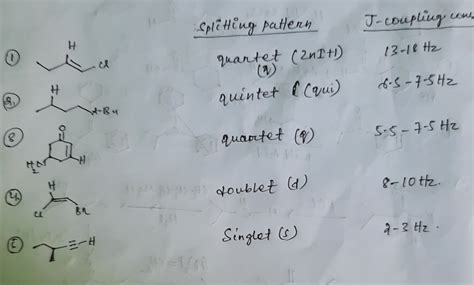 Splitting pattern J-coupling cons
① H Cl quartet (2nI+1) 13-18 Hz
(q)
② H t-Bu quintet (qui) 6.5 - 7.5 Hz
③ O H₂N H quartet (q) 5.5 - 7.5 Hz
④ H Cl Br doublet (d) 8-10 Hz.
H Singlet (s) 2-3 Hz.